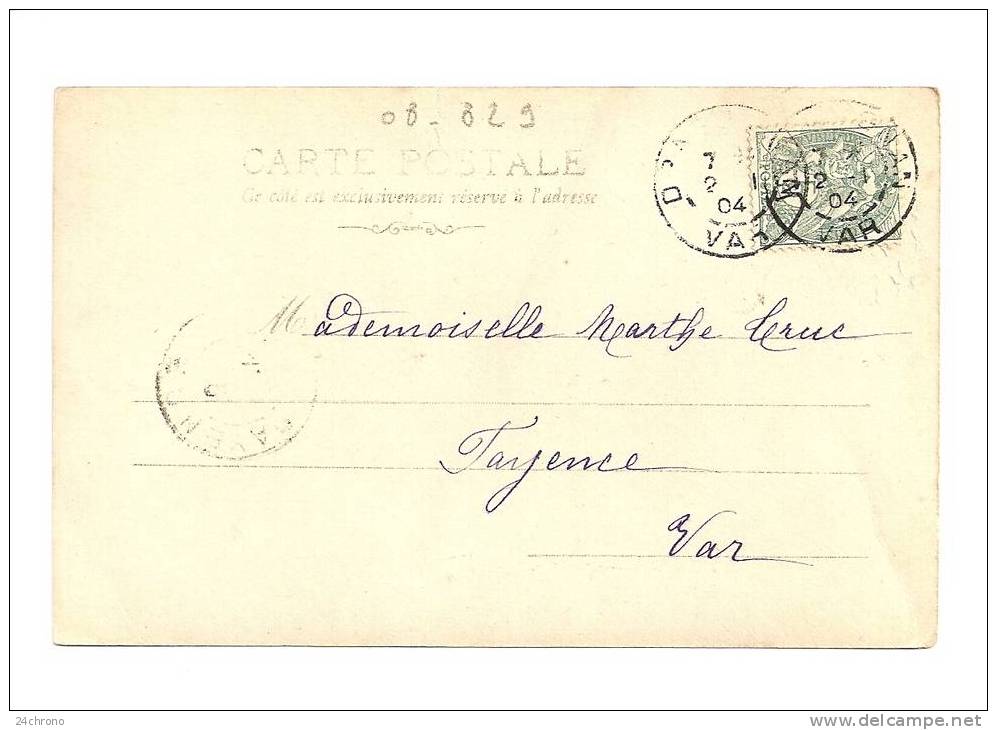 08-829
CARTE POSTALE
Ce côté est exclusivement réservé à l'adresse
7
2 1
04
VAR
2 1
04
VAR
Mademoiselle Marthe Cruc
Fayence
Var
FAYEN
24chrono
www.delcampe.net